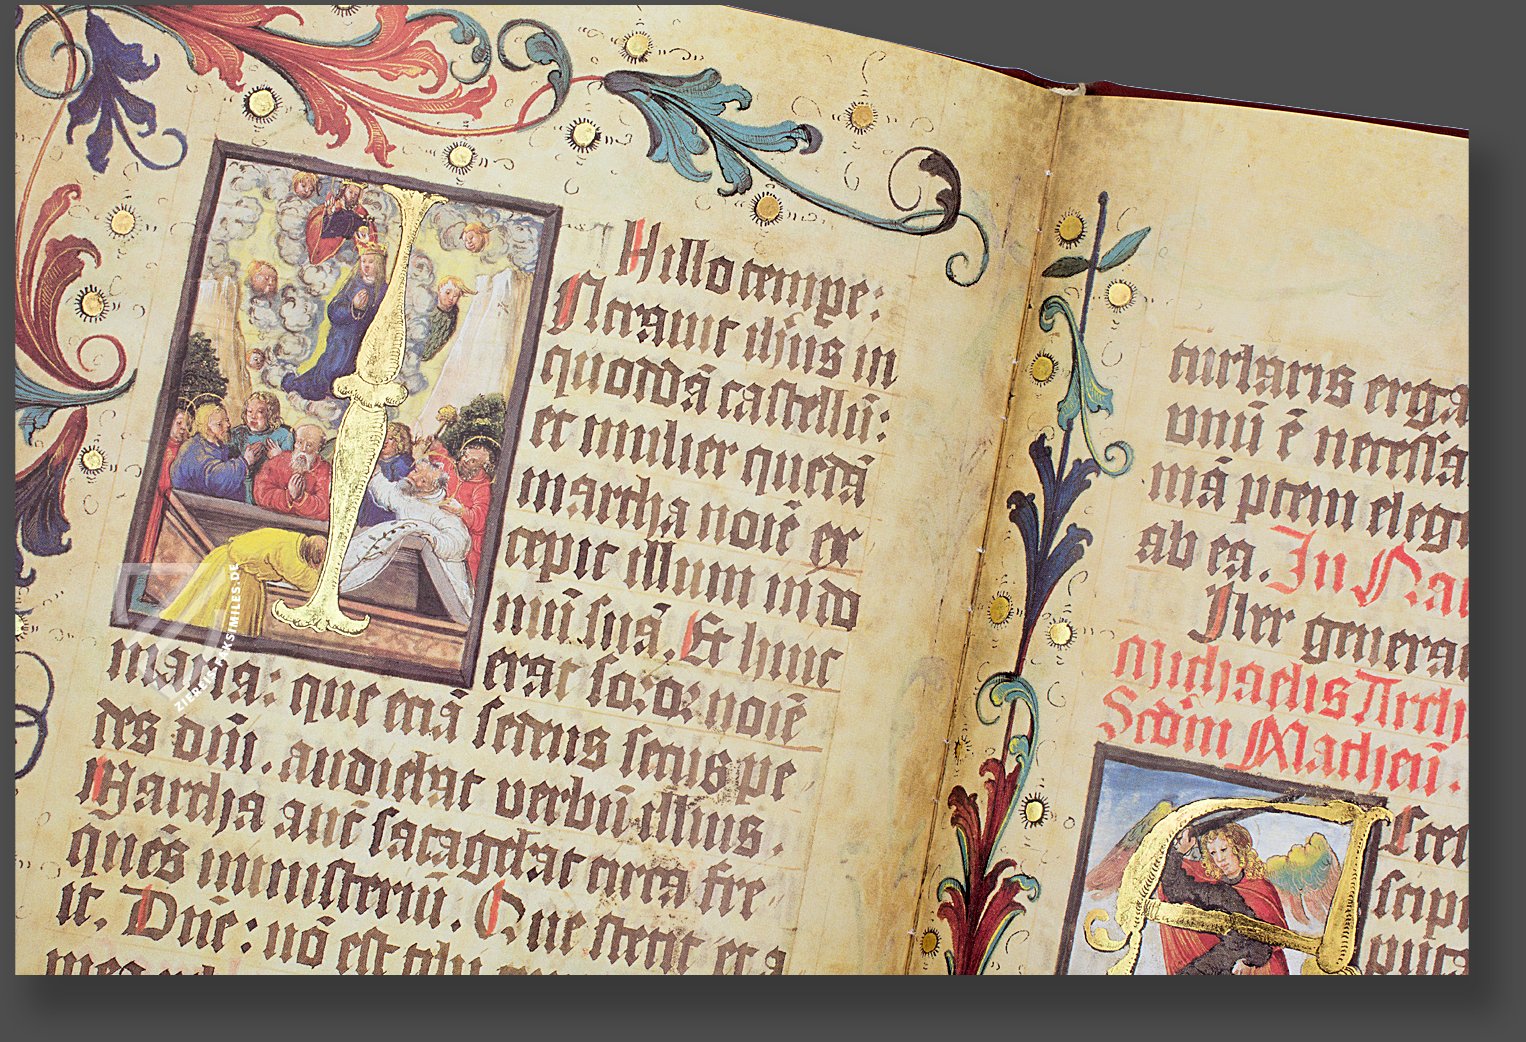 N illo tempe:
Intrauit ihūs in
quoddā castellū:
et mulier quedā
martha noīe ex
cepit illum in do
mū suā. Et huic
erat soror noīe
maria: que etiā sedens secus pe
des dn̄i. audiebat verbū illius.
Martha aut̄ satagebat circa fre
quēs ministeriū. Que stetit et a
it. Dn̄e: nō est tibi
turbaris erga
vnū ē necessa
mā ptem elegi
ab ea. In
Iter genera
Michaelis Arch
Scd̄m Matheū.
ZIEREIS FAKSIMILES.DE